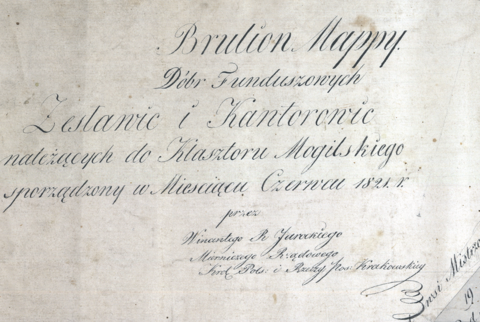 Brulion Mappy.
Dóbr Funduszowych
Zesławic i Kantorowic
należących do Klasztoru Mogilskiego
sporządzony w Miesiącu Czerwcu 1821. r.
przez
Wincentego R Jareckiego
Mierniczego Rządowego
Król. Pols. i Rzeczy Pos. Krakowskiey
19